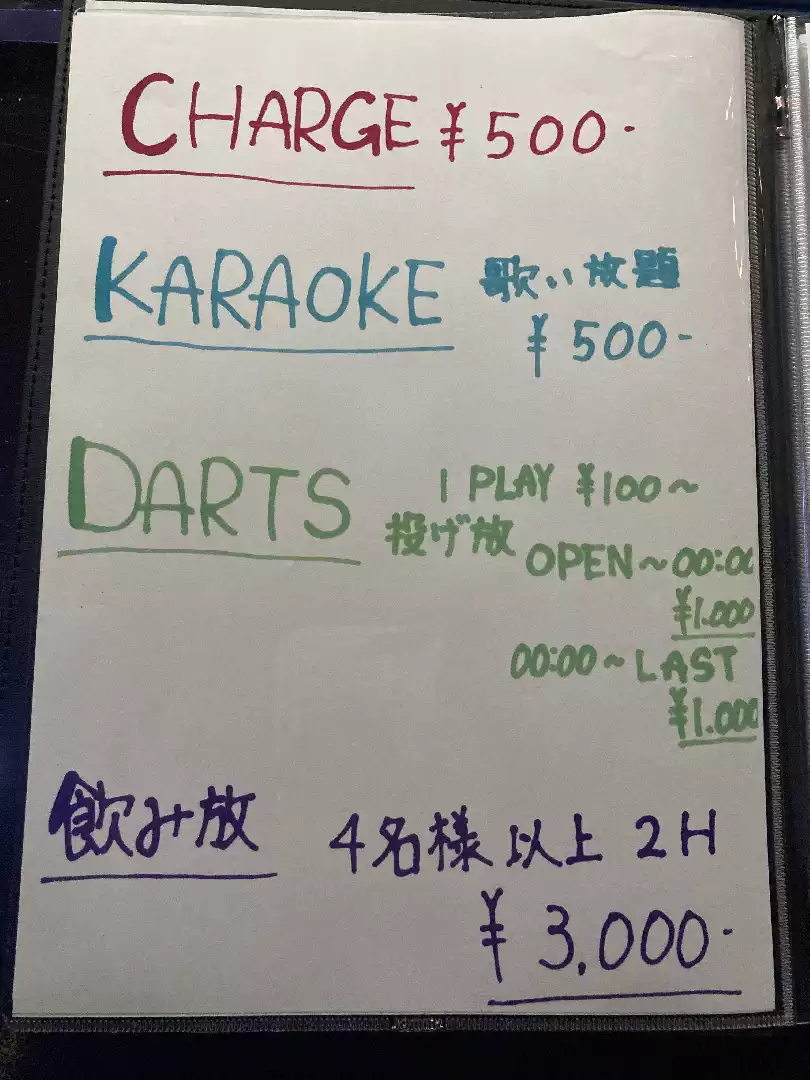 CHARGE ¥500-
KARAOKE 歌い放題
¥500-
DARTS 1 PLAY ¥100~
投げ放 OPEN~00:00
¥1.000
00:00~LAST
¥1.000
飲み放 4名様以上 2H
¥3,000-